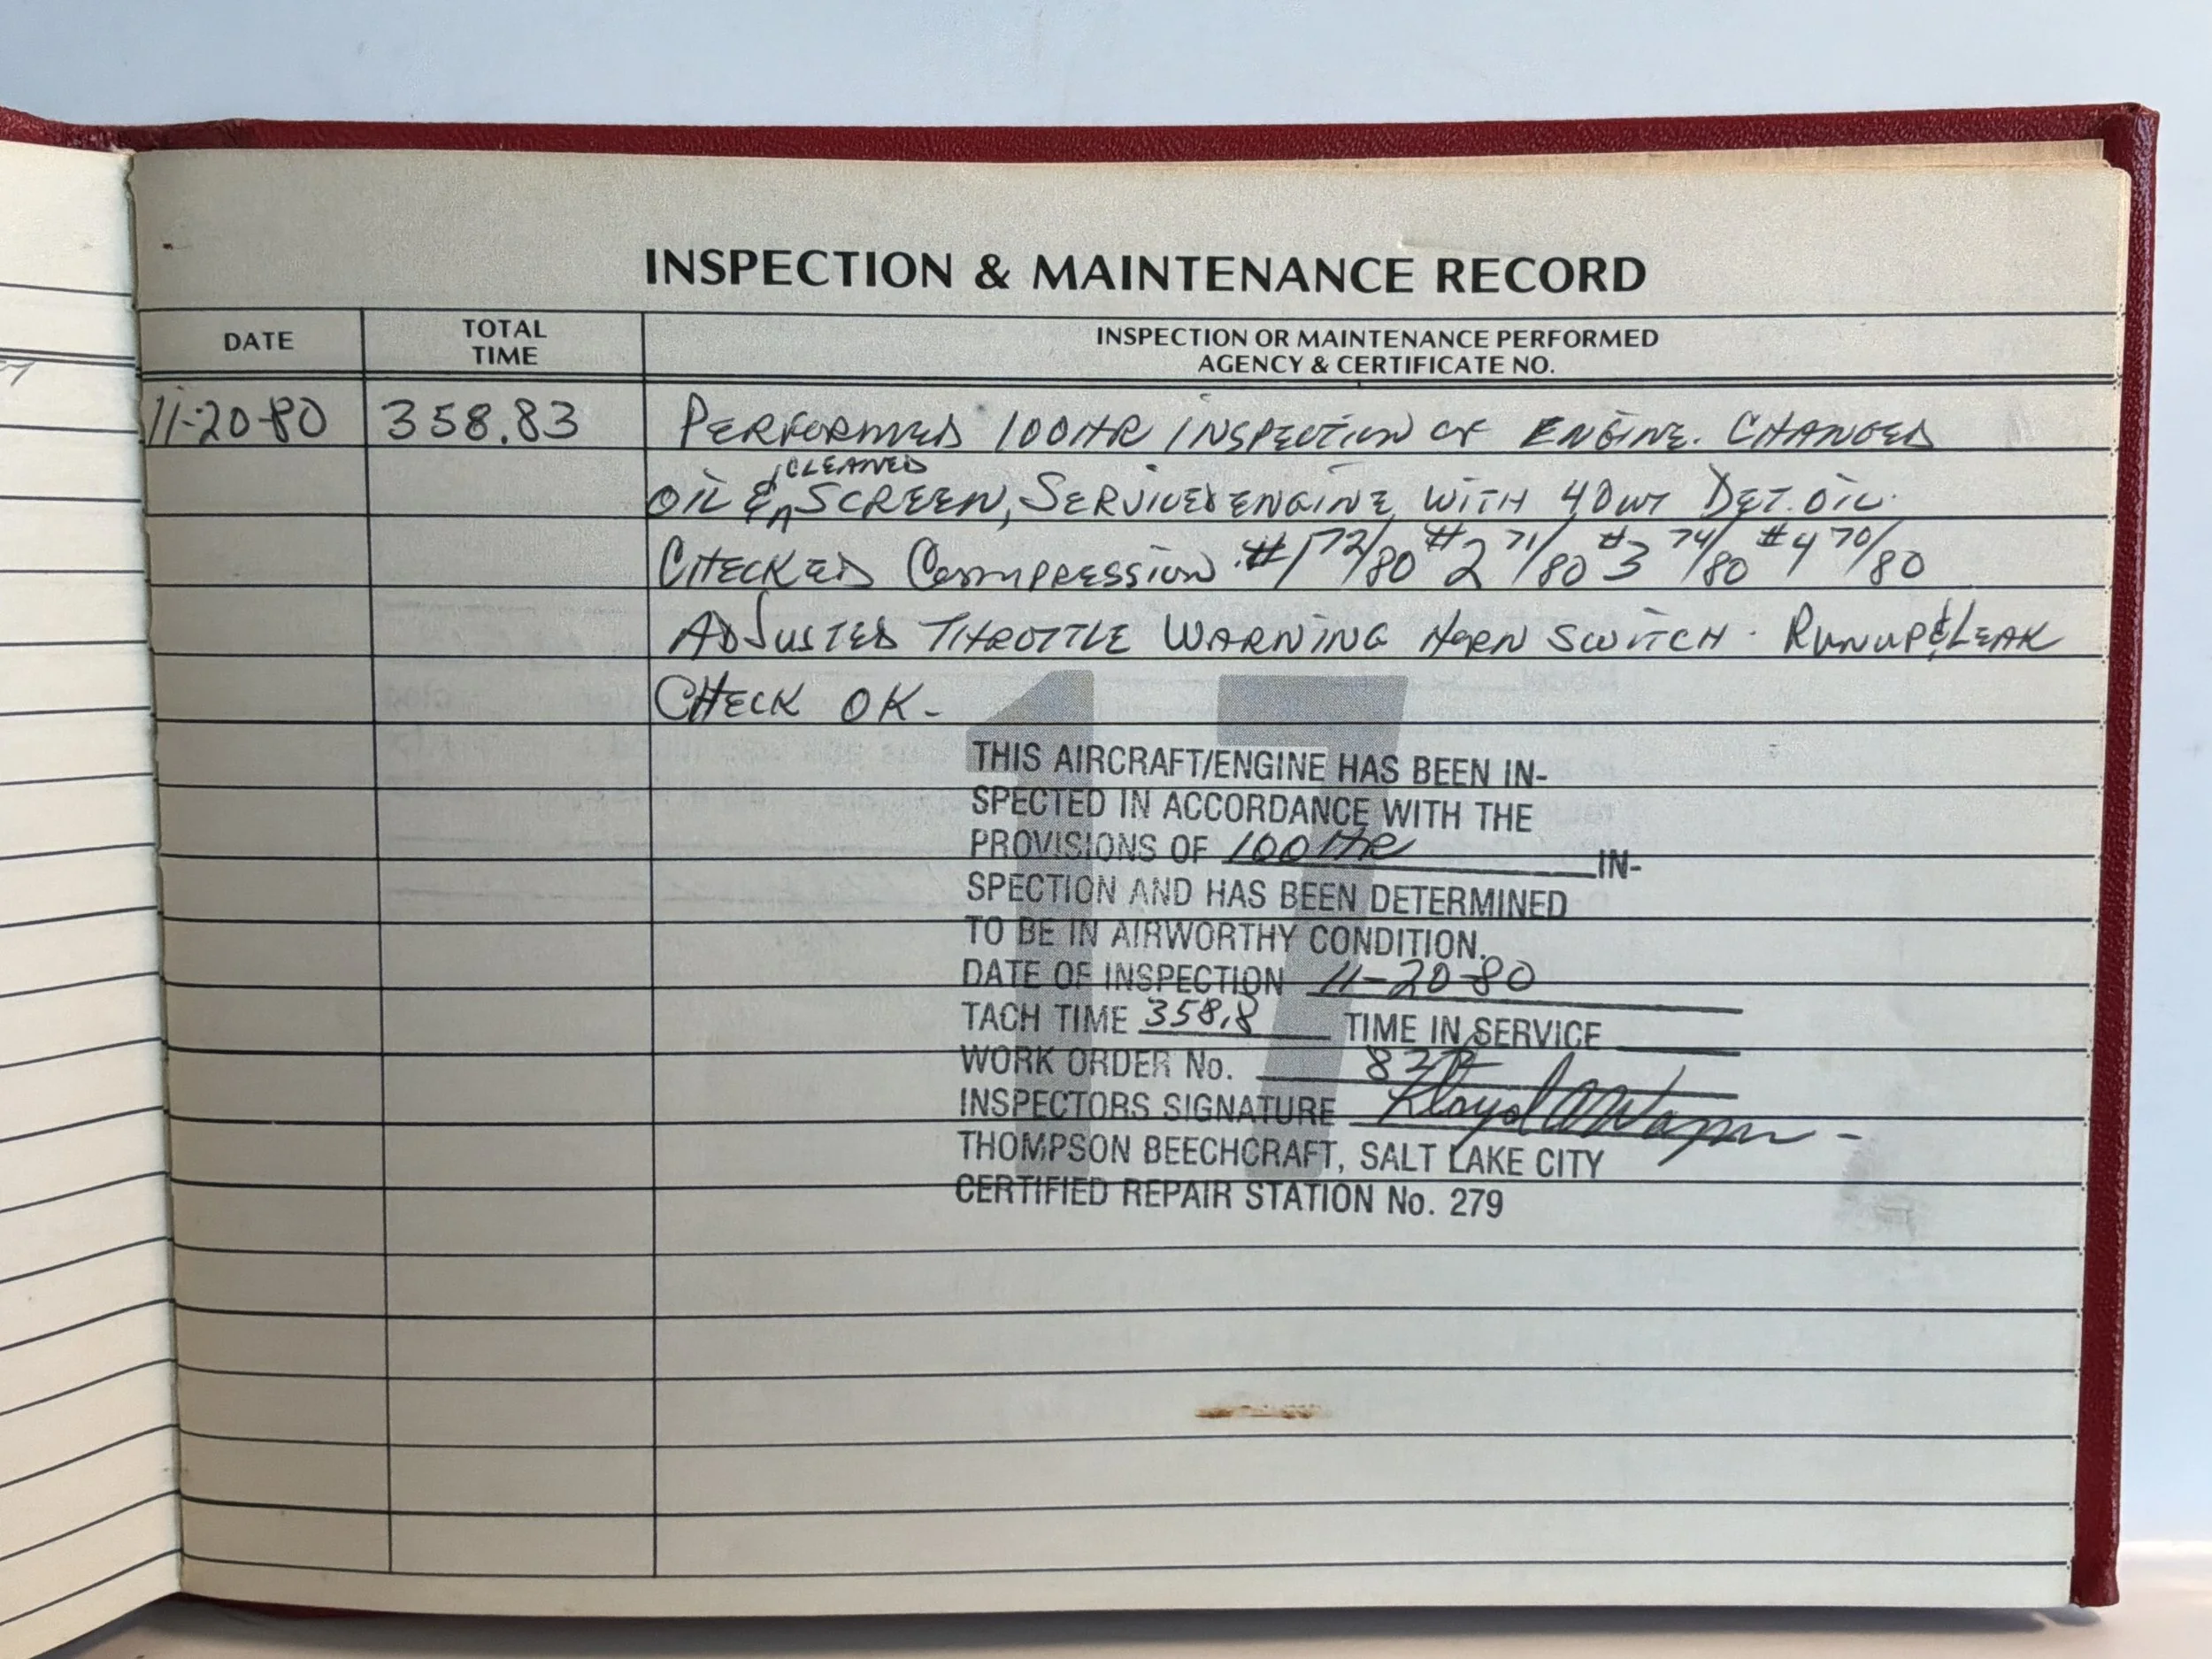 INSPECTION & MAINTENANCE RECORD
DATE
TOTAL
TIME
INSPECTION OR MAINTENANCE PERFORMED
AGENCY & CERTIFICATE NO.
11-20-80 358.83 PERFORMED 100HR INSPECTION OF ENGINE. CHANGED
CLEANED
OIL & SCREEN, SERVICED ENGINE WITH 40WT DET. OIL.
CHECKED COMPRESSION #1 72/80 #2 71/80 #3 74/80 #4 70/80
ADJUSTED THROTTLE WARNING HORN SWITCH. RUNUP & LEAK
CHECK OK-
17
THIS AIRCRAFT/ENGINE HAS BEEN IN-
SPECTED IN ACCORDANCE WITH THE
PROVISIONS OF 100HR IN-
SPECTION AND HAS BEEN DETERMINED
TO BE IN AIRWORTHY CONDITION.
DATE OF INSPECTION 11-20-80
TACH TIME 358.8 TIME IN SERVICE
WORK ORDER No.
INSPECTORS SIGNATURE
THOMPSON BEECHCRAFT, SALT LAKE CITY
CERTIFIED REPAIR STATION No. 279